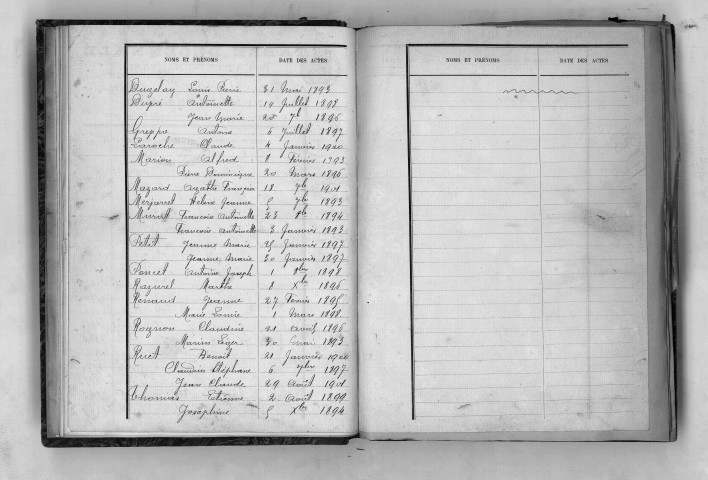 NOMS ET PRÉNOMS DATE DES ACTES
Duzelay Louis Pierre 31 Mai 1893
Dupré Antoinette 19 Juillet 1898
Jean Marie 28 7b 1896
Greppo Antoine 6 Juillet 1897
Laroche Claude 4 Janvier 1900
Marion Alfred 8 Février 1893
Pierre Dominique 20 Mars 1896
Mazard Agathe Françoise 18 7br 1901
Merjarret Hélène Jeanne 5 7br 1893
Murat Francois Antoinette 23 1894
Francois Antoinette 3 Janvier 1893
Petit Jeanne Marie 25 Janvier 1897
Jeanne Marie 30 Janvier 1897
Poncet Antoine Joseph 1 1898
Raquerel Marthe 8 Xbr 1896
Renaud Jeanne 27 Février 1895
Marie Louise 1 Mars 1898
Rognon Claudine 21 Avril 1896
Marius Leger 30 Mai 1893
Ruet Benoit 21 Janvier 1900
Claudius Stéphane 6 1897
Jean Claude 29 Août 1901
Thomas Etienne 2 Août 1899
Joséphine 5 Xbr 1894
NOMS ET PRÉNOMS DATE DES ACTES